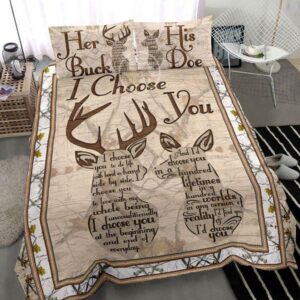 Her
Buck
His
Doe
I Choose
You
I choose
you
to do life
with hand in hand
side by side
I choose
you
to love with my
whole being
unconditionally
I choose you
at the
beginning
and end of
everyday.
And I'd
choose you
in a hundred
lifetimes
in a
hundred
worlds
in any version of
reality I'd find
you
I'd choose
you